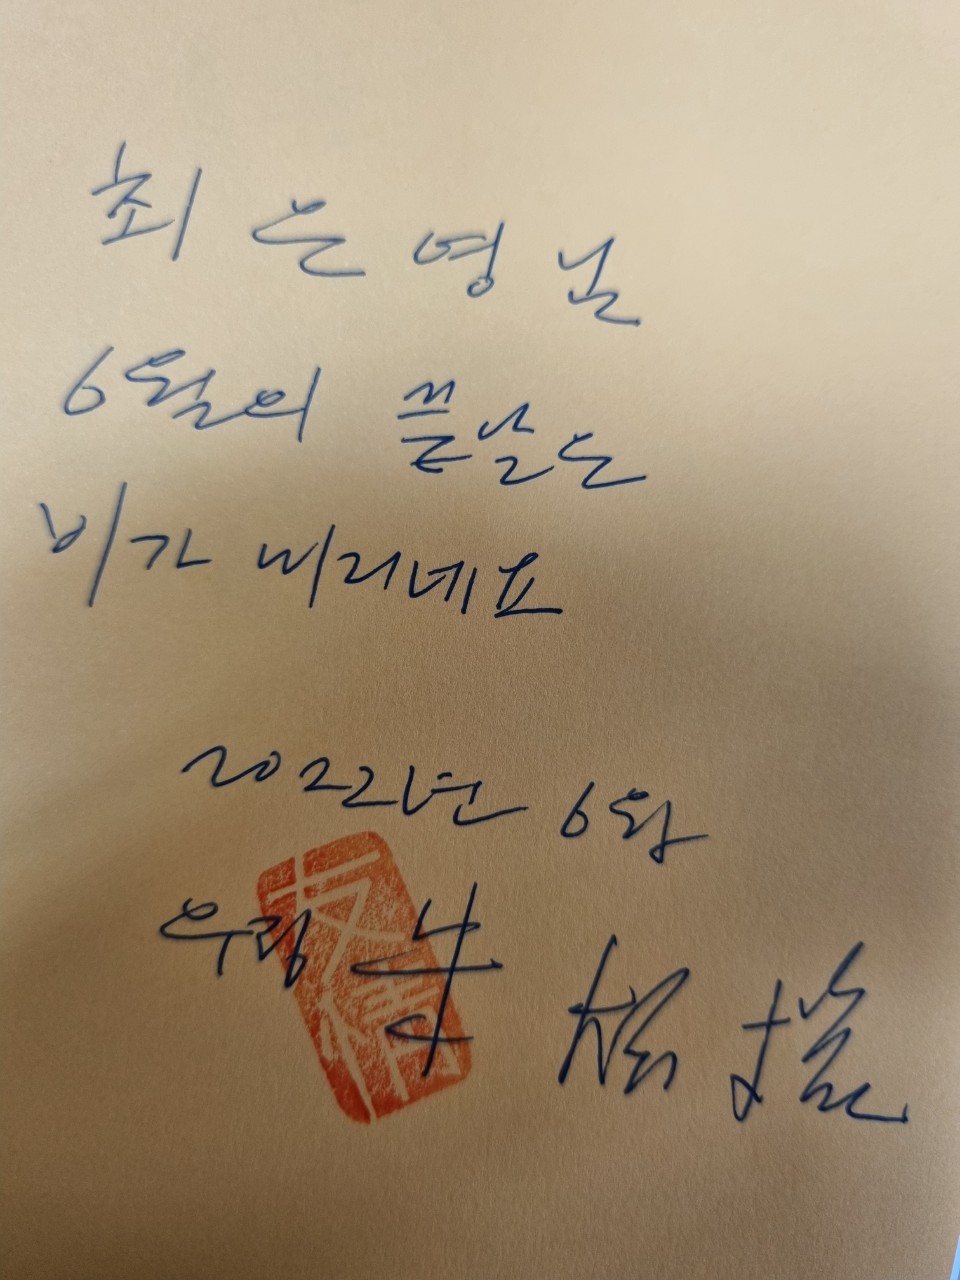 최은영님
6월의 끝날은
비가 내리네요
2022년 6월
우정
友情